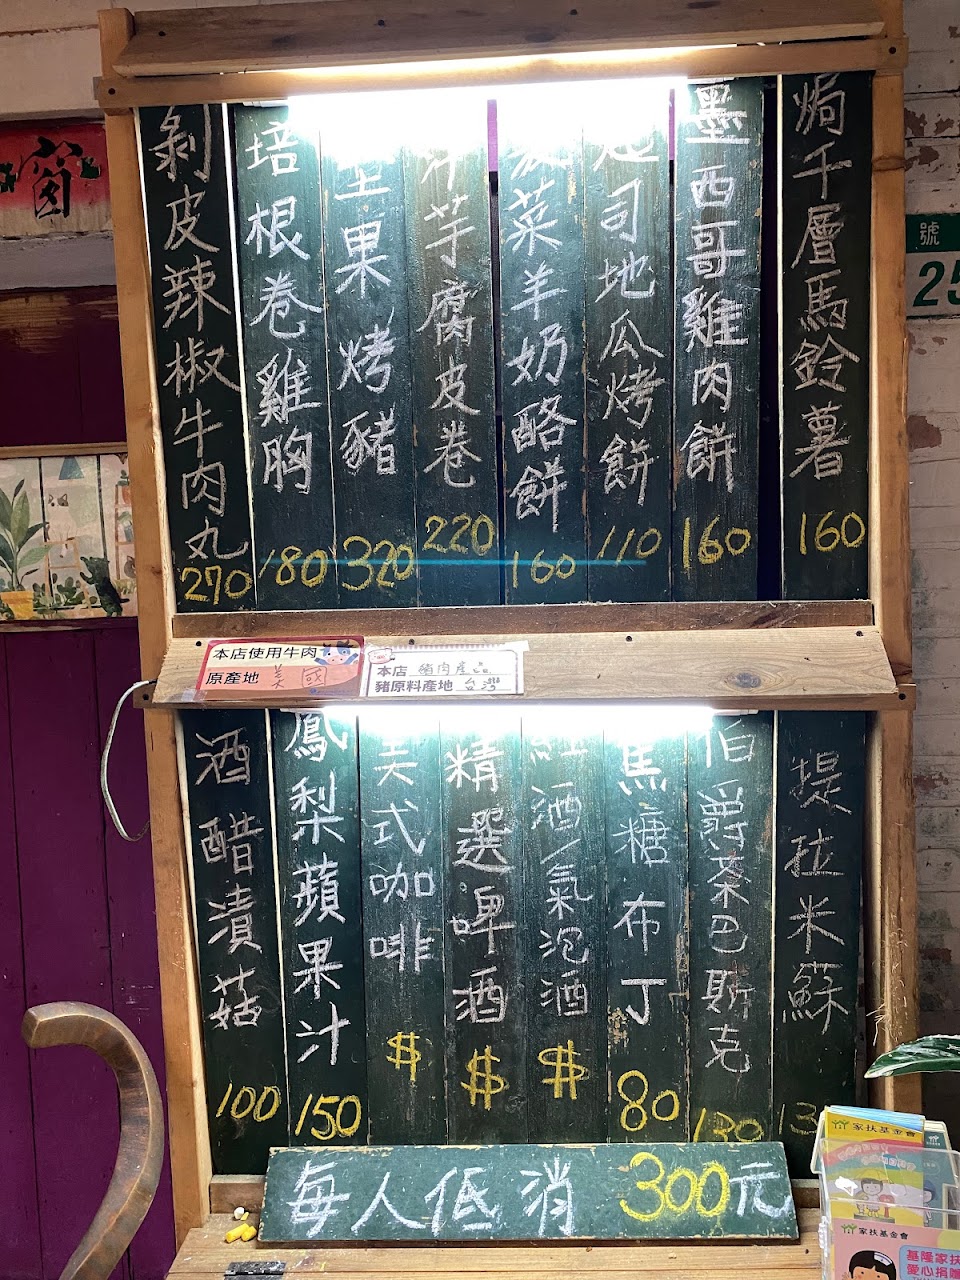 焗千層馬鈴薯 160
墨西哥雞肉餅 160
起司地瓜烤餅 110
菠菜羊奶酪餅 160
洋芋腐皮卷 220
堅果烤豬 320
培根卷雞胸 180
剝皮辣椒牛肉丸 270
本店使用牛肉
原產地 美國
本店 豬肉產品
豬原料產地 台灣
提拉米蘇
伯爵茶巴斯克 130
焦糖布丁 80
紅酒/氣泡酒 $
精選啤酒 $
美式咖啡 $
鳳梨蘋果汁 150
酒醋漬菇 100
每人低消 300元
窗
號
25
家扶基金會
家扶基金會
基隆家扶
愛心捐